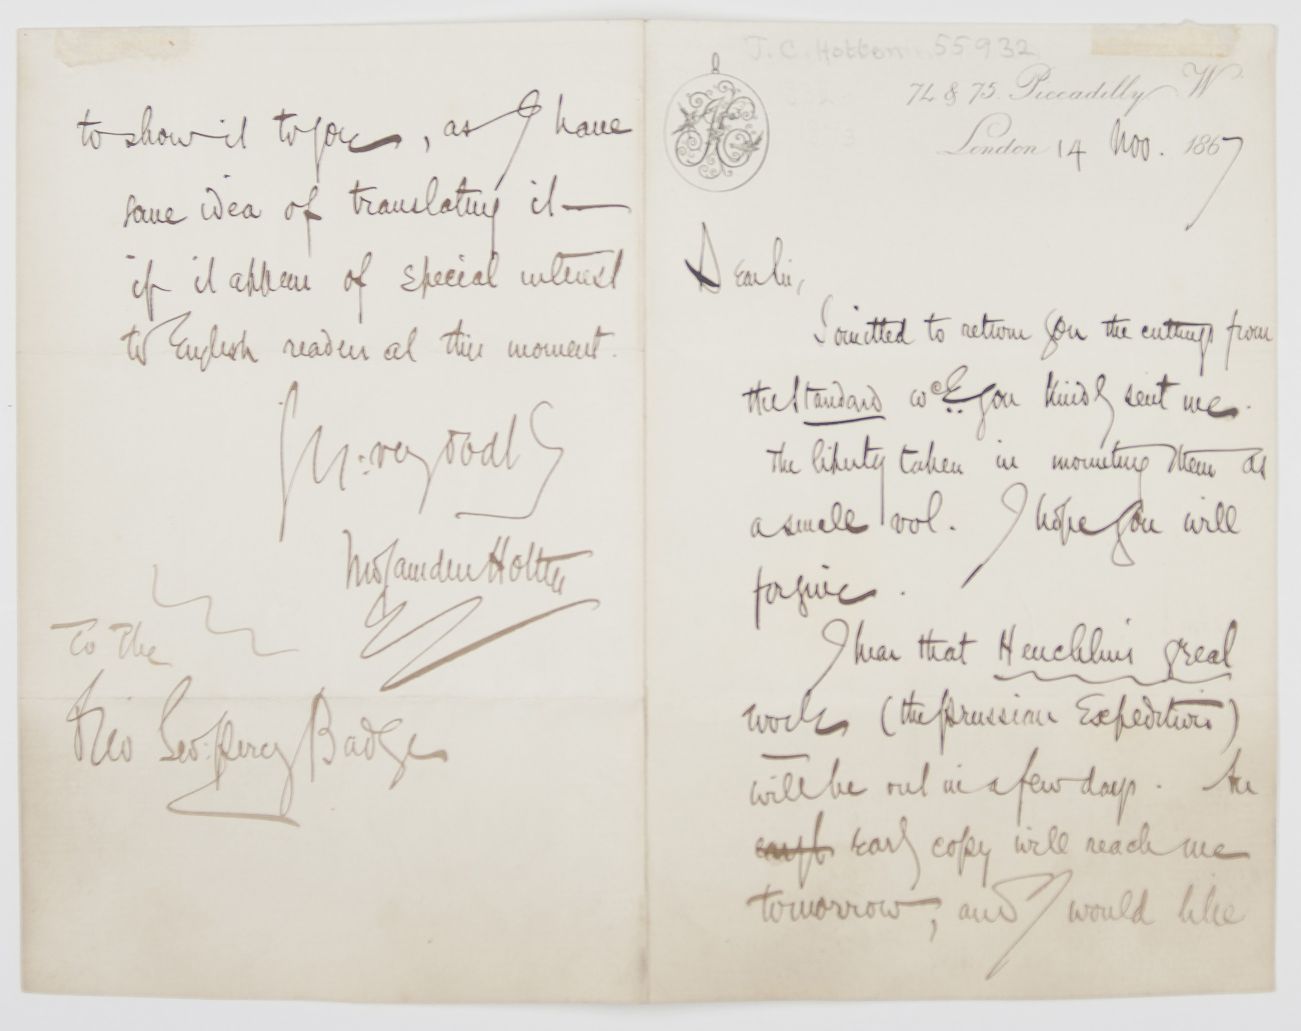 J. C. Hotten 55932
74 & 75 Piccadilly W
London 14 Nov. 1867
Dear Sir,
I omitted to return you the cuttings from
the Standard wch you kindly sent me.
The liberty taken in mounting them as
a small vol. I hope you will
forgive.
I hear that Heuchlin's great
work (the Prussian Expedition)
will be out in a few days. An
early copy will reach me
tomorrow, and I would like
to show it to you, as I have
some idea of translating it—
if it appear of special interest
to English readers at this moment.
very
Jno Camden Hotten
To the
Rev Geo: Percy Badger